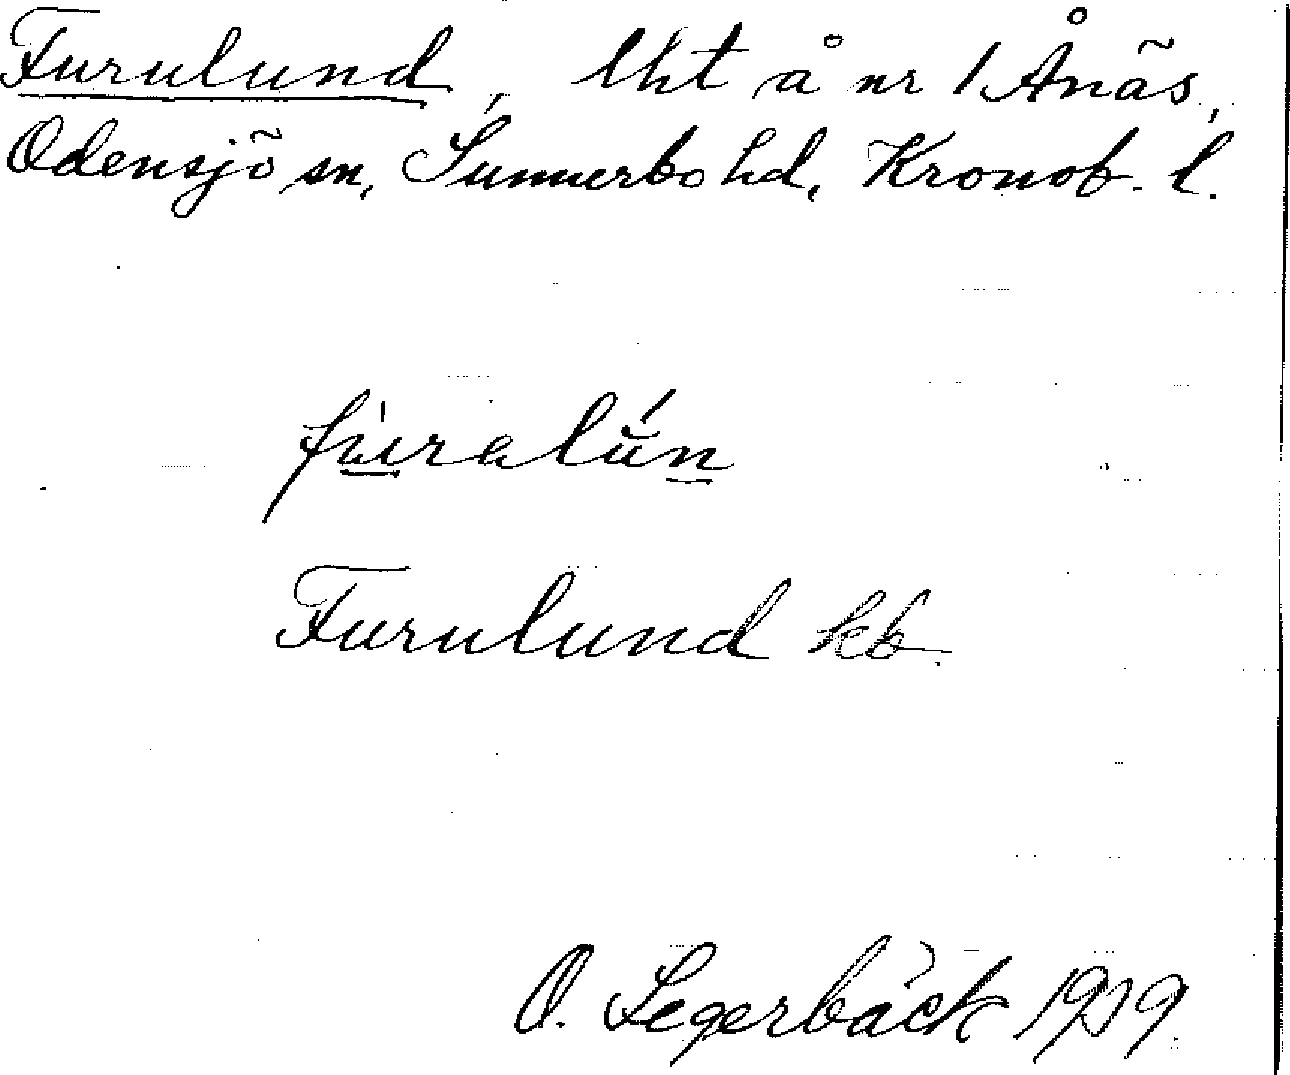 Furulund, lht å nr 1 Ånäs,
Odensjö sn, Sunnerbo hd, Kronob. l.
fùralún
Furulund kb.
O. Segerbäck 1919